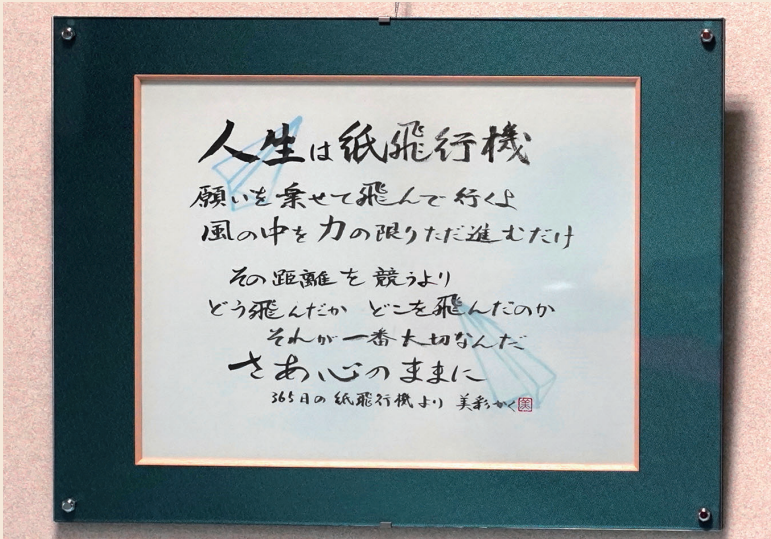 人生は紙飛行機
願いを乗せて飛んで行くよ
風の中を力の限りただ進むだけ
その距離を競うより
どう飛んだか どこを飛んだのか
それが一番大切なんだ
さあ心のままに
365日の紙飛行機より 美彩かく 美